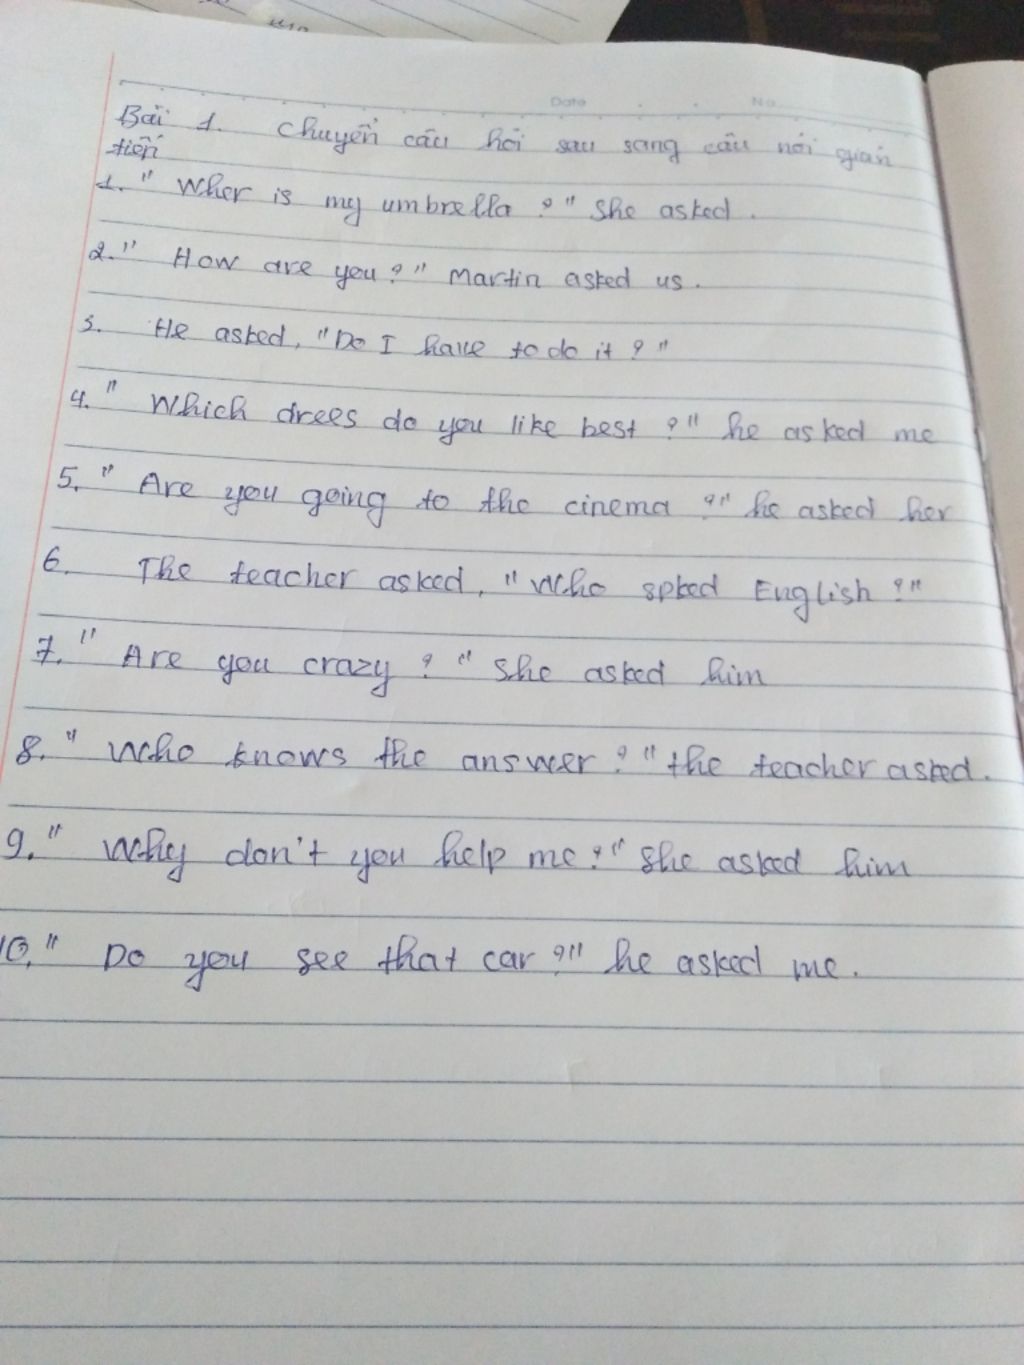 Date No.
Bài 1. Chuyển câu hỏi sau sang câu nói gián
tiến
1. " Wher is my umbrella ?" She asked.
2. " How are you?" Martin asked us.
3. He asked, "Do I have to do it ?"
4. " Which drees do you like best ?" he asked me
5. " Are you going to the cinema ?" he asked her
6. The teacher asked, "Who spked English ?"
7. " Are you crazy ? " She asked him
8. " Who knows the answer ?" the teacher asked.
9. " Why don't you help me?" She asked him
10. " Do you see that car ?" he asked me.